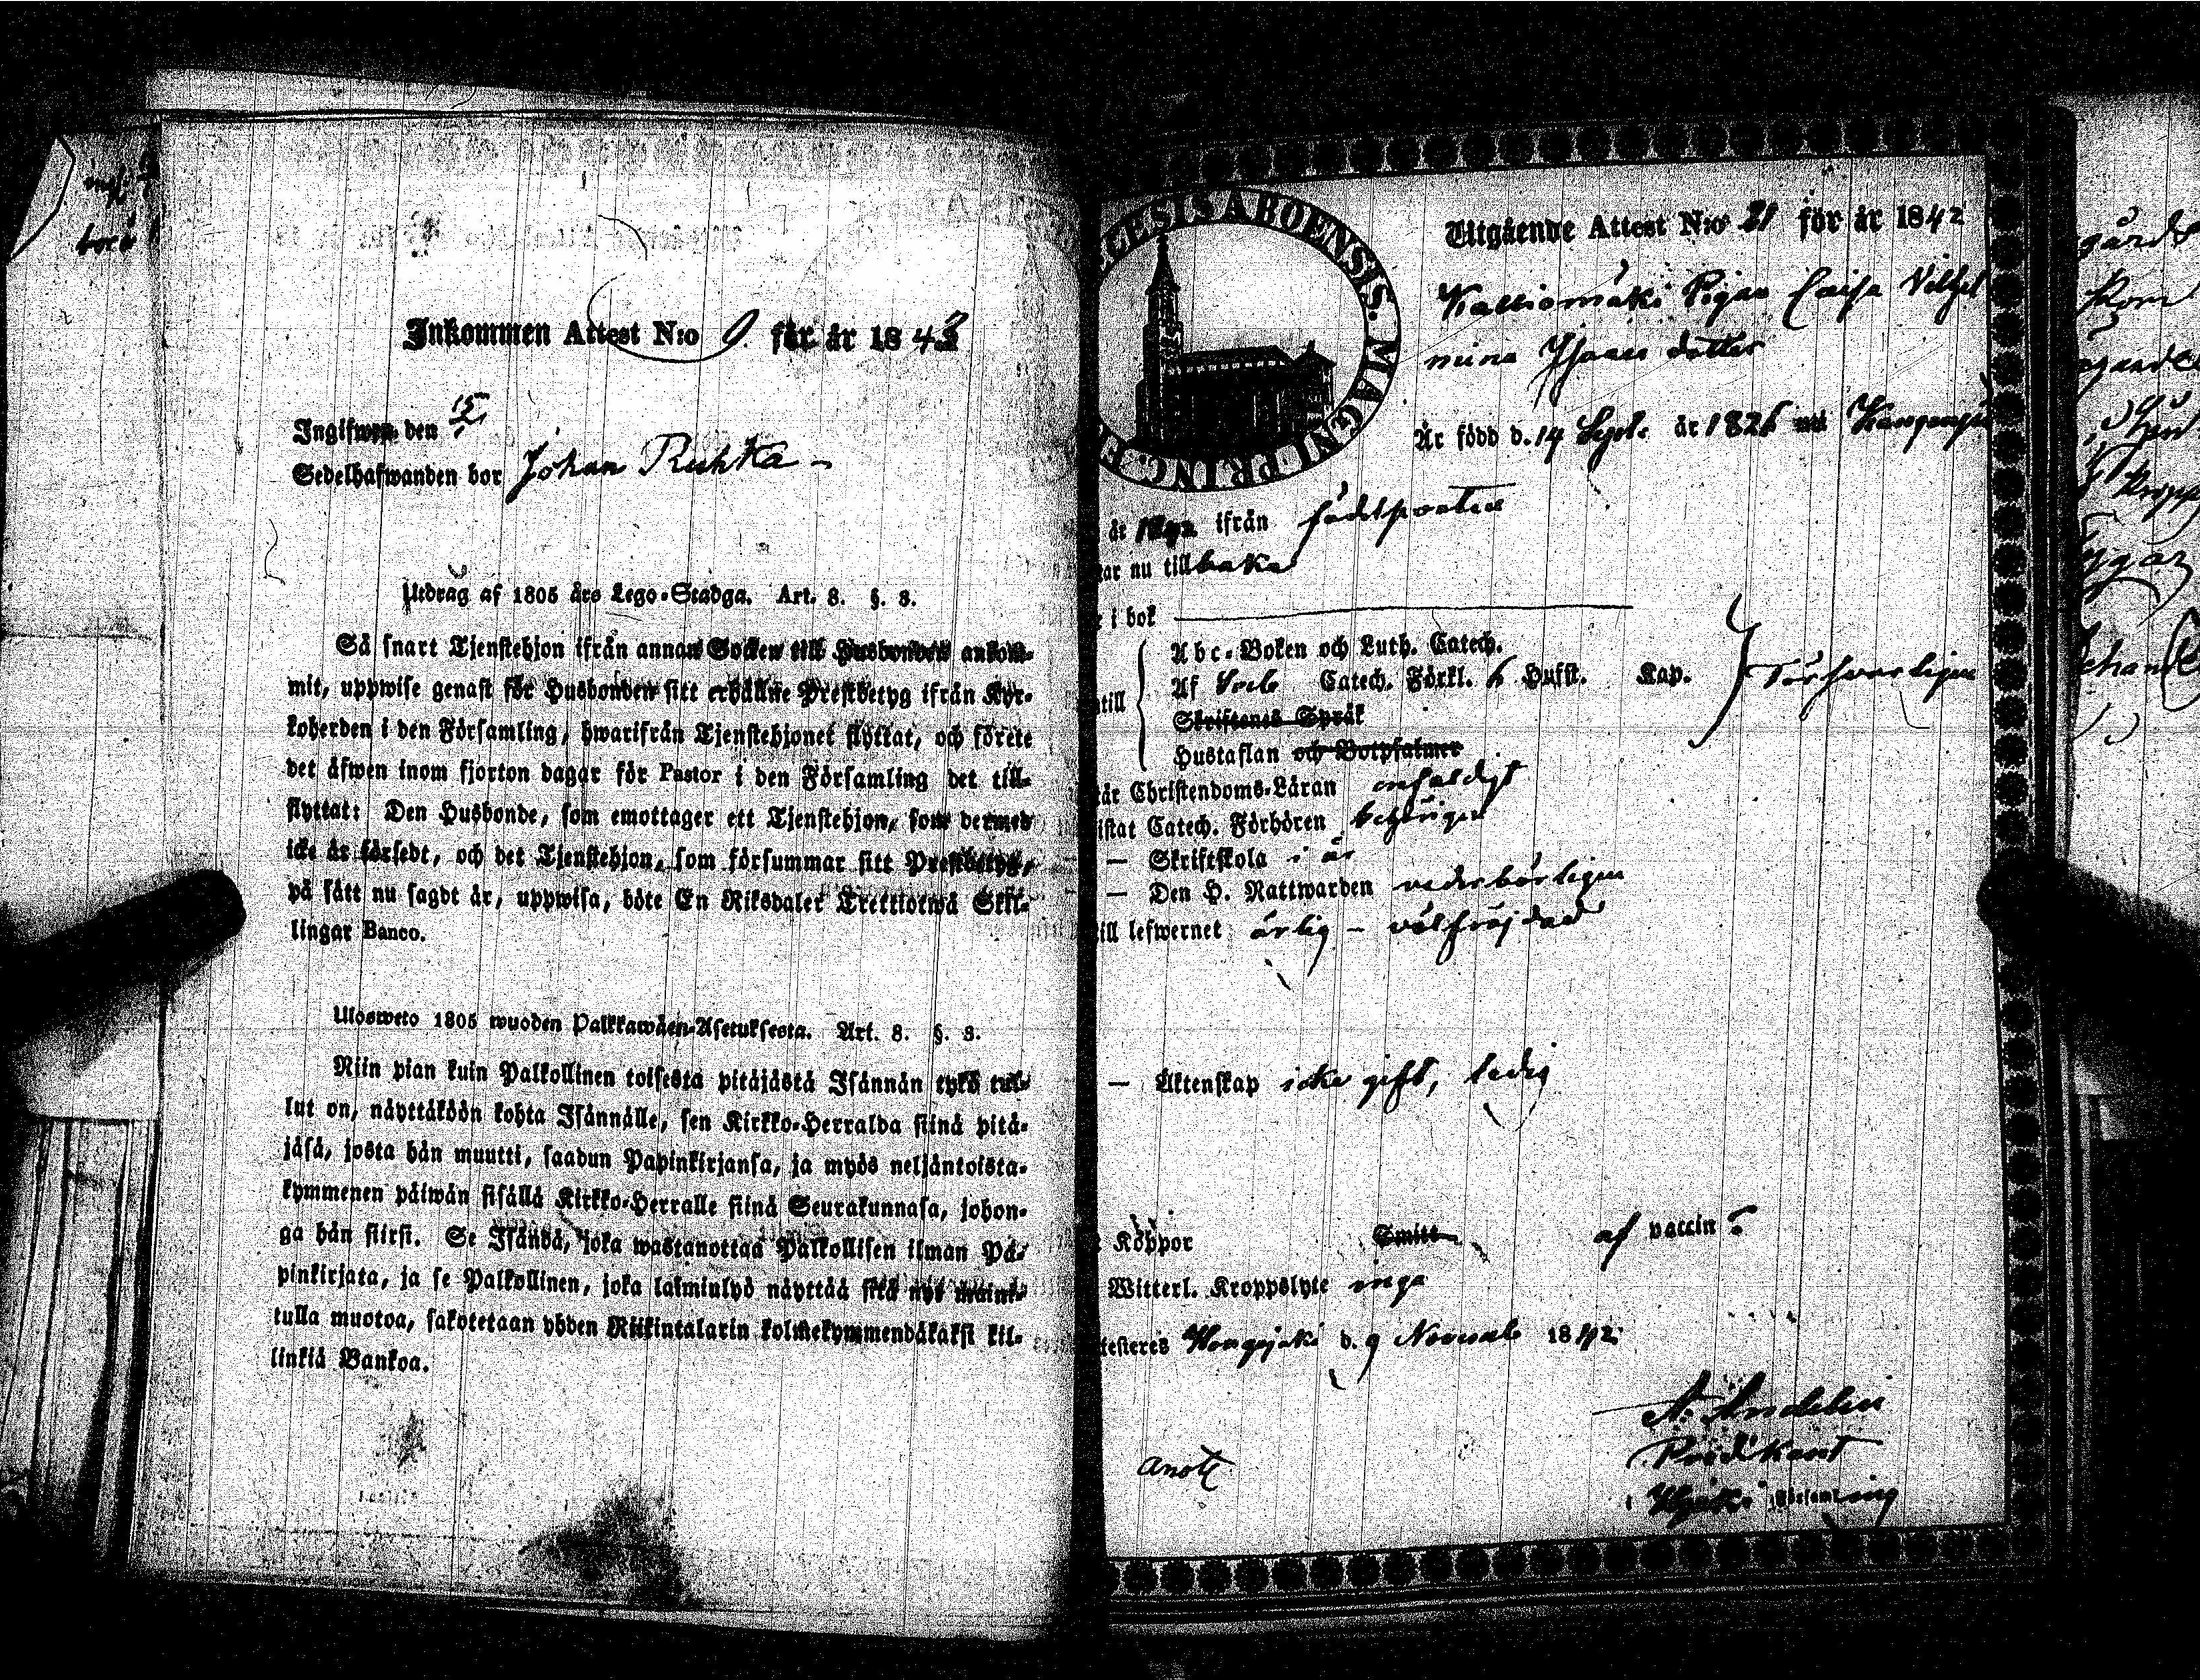 Inkommen Attest N:o 9. för år 1843
Ingifwen den 15/1
Sedelhafwanden bor Johan Ruhka
Utdrag af 1805 års Lego-Stadga. Art. 8. §. 3.
Så snart Tjenstehjon ifrån annan Socken till Husbonden ankom-
mit, uppwise genast för Husbonden sitt erhållne Prestbetyg ifrån Kyr-
koherden i den Församling, hwarifrån Tjenstehjonet flyttat, och förete
det äfwen inom fjorton dagar för Pastor i den Församling det till-
flyttat: Den Husbonde, som emottager ett Tjenstehjon, som dermed
icke är försedt, och det Tjenstehjon, som försummar sitt Prestbetyg,
på sätt nu sagdt är, uppwisa, böte En Riksdaler Trettiotwå Skil-
lingar Banco.
Ulosweto 1805 wuoden Palkkawäen-Asetuksesta. Art. 8. §. 3.
Niin pian kuin Palkollinen toisesta pitäjästä Isännän tykö tul-
lut on, näyttäköön kohta Isännälle, sen Kirkko-Herralda siinä pitä-
jäsä, josta hän muutti, saadun Papinkirjansa, ja myös neljäntoista-
kymmenen päiwän sisällä Kirkko-Herralle siinä Seurakunnasa, johon-
ga hän siirsi. Se Isändä, joka wastanottaa Palkollisen ilman Pa-
pinkirjata, ja se Palkollinen, joka laiminlyö näyttää sitä nyt maini-
tulla muotoa, sakotetaan yhden Riikintalarin kolmekymmendäkaksi kil-
linkiä Bankoa.
ABOENSIS. MAGNI PRINC.
Utgående Attest N:o 21 för år 1842
Kalliomäki Pigan Caisa Vilhel
mina Isaacs dotter
Är född d. 14 Sept. år 1826
år 1842 ifrån födelseorten
nu tillbaka
i bok
Abc-Boken och Luth. Catech.
Af Catech. Förkl. 6 Hufst. Kap.
Försvarligen
till
Skriftenes Språk
Hustaflan och Botpsalmer
Christendoms-Läran enfaldigt
Catech. Förhören behörigen
— Skriftskola i år
— Den H. Nattwarden vederbörligen
till lefwernet ärlig - välfräjdad
— Äktenskap icke gift, ledig
Koppor Smitt af vaccin
Witterl. Kroppslyte inga
Hongojoki d. 9 Novemb 1842
A. Andelin
Predikant
anot